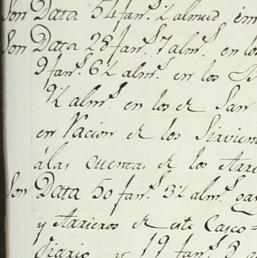 Son Data 54 fan.s ½ almud em
Son Data 28 fan.s 7 alm.s en los
9 fan.s 6½ alm.s en los
9½ alm.s en los de San
en Racion de los Sirvien
á las cuentas de los Arre
Son Data 50 fan.s 3½ alm.s gas
y Arrieros de este Casco=
Diario, y 19 fan.s 8